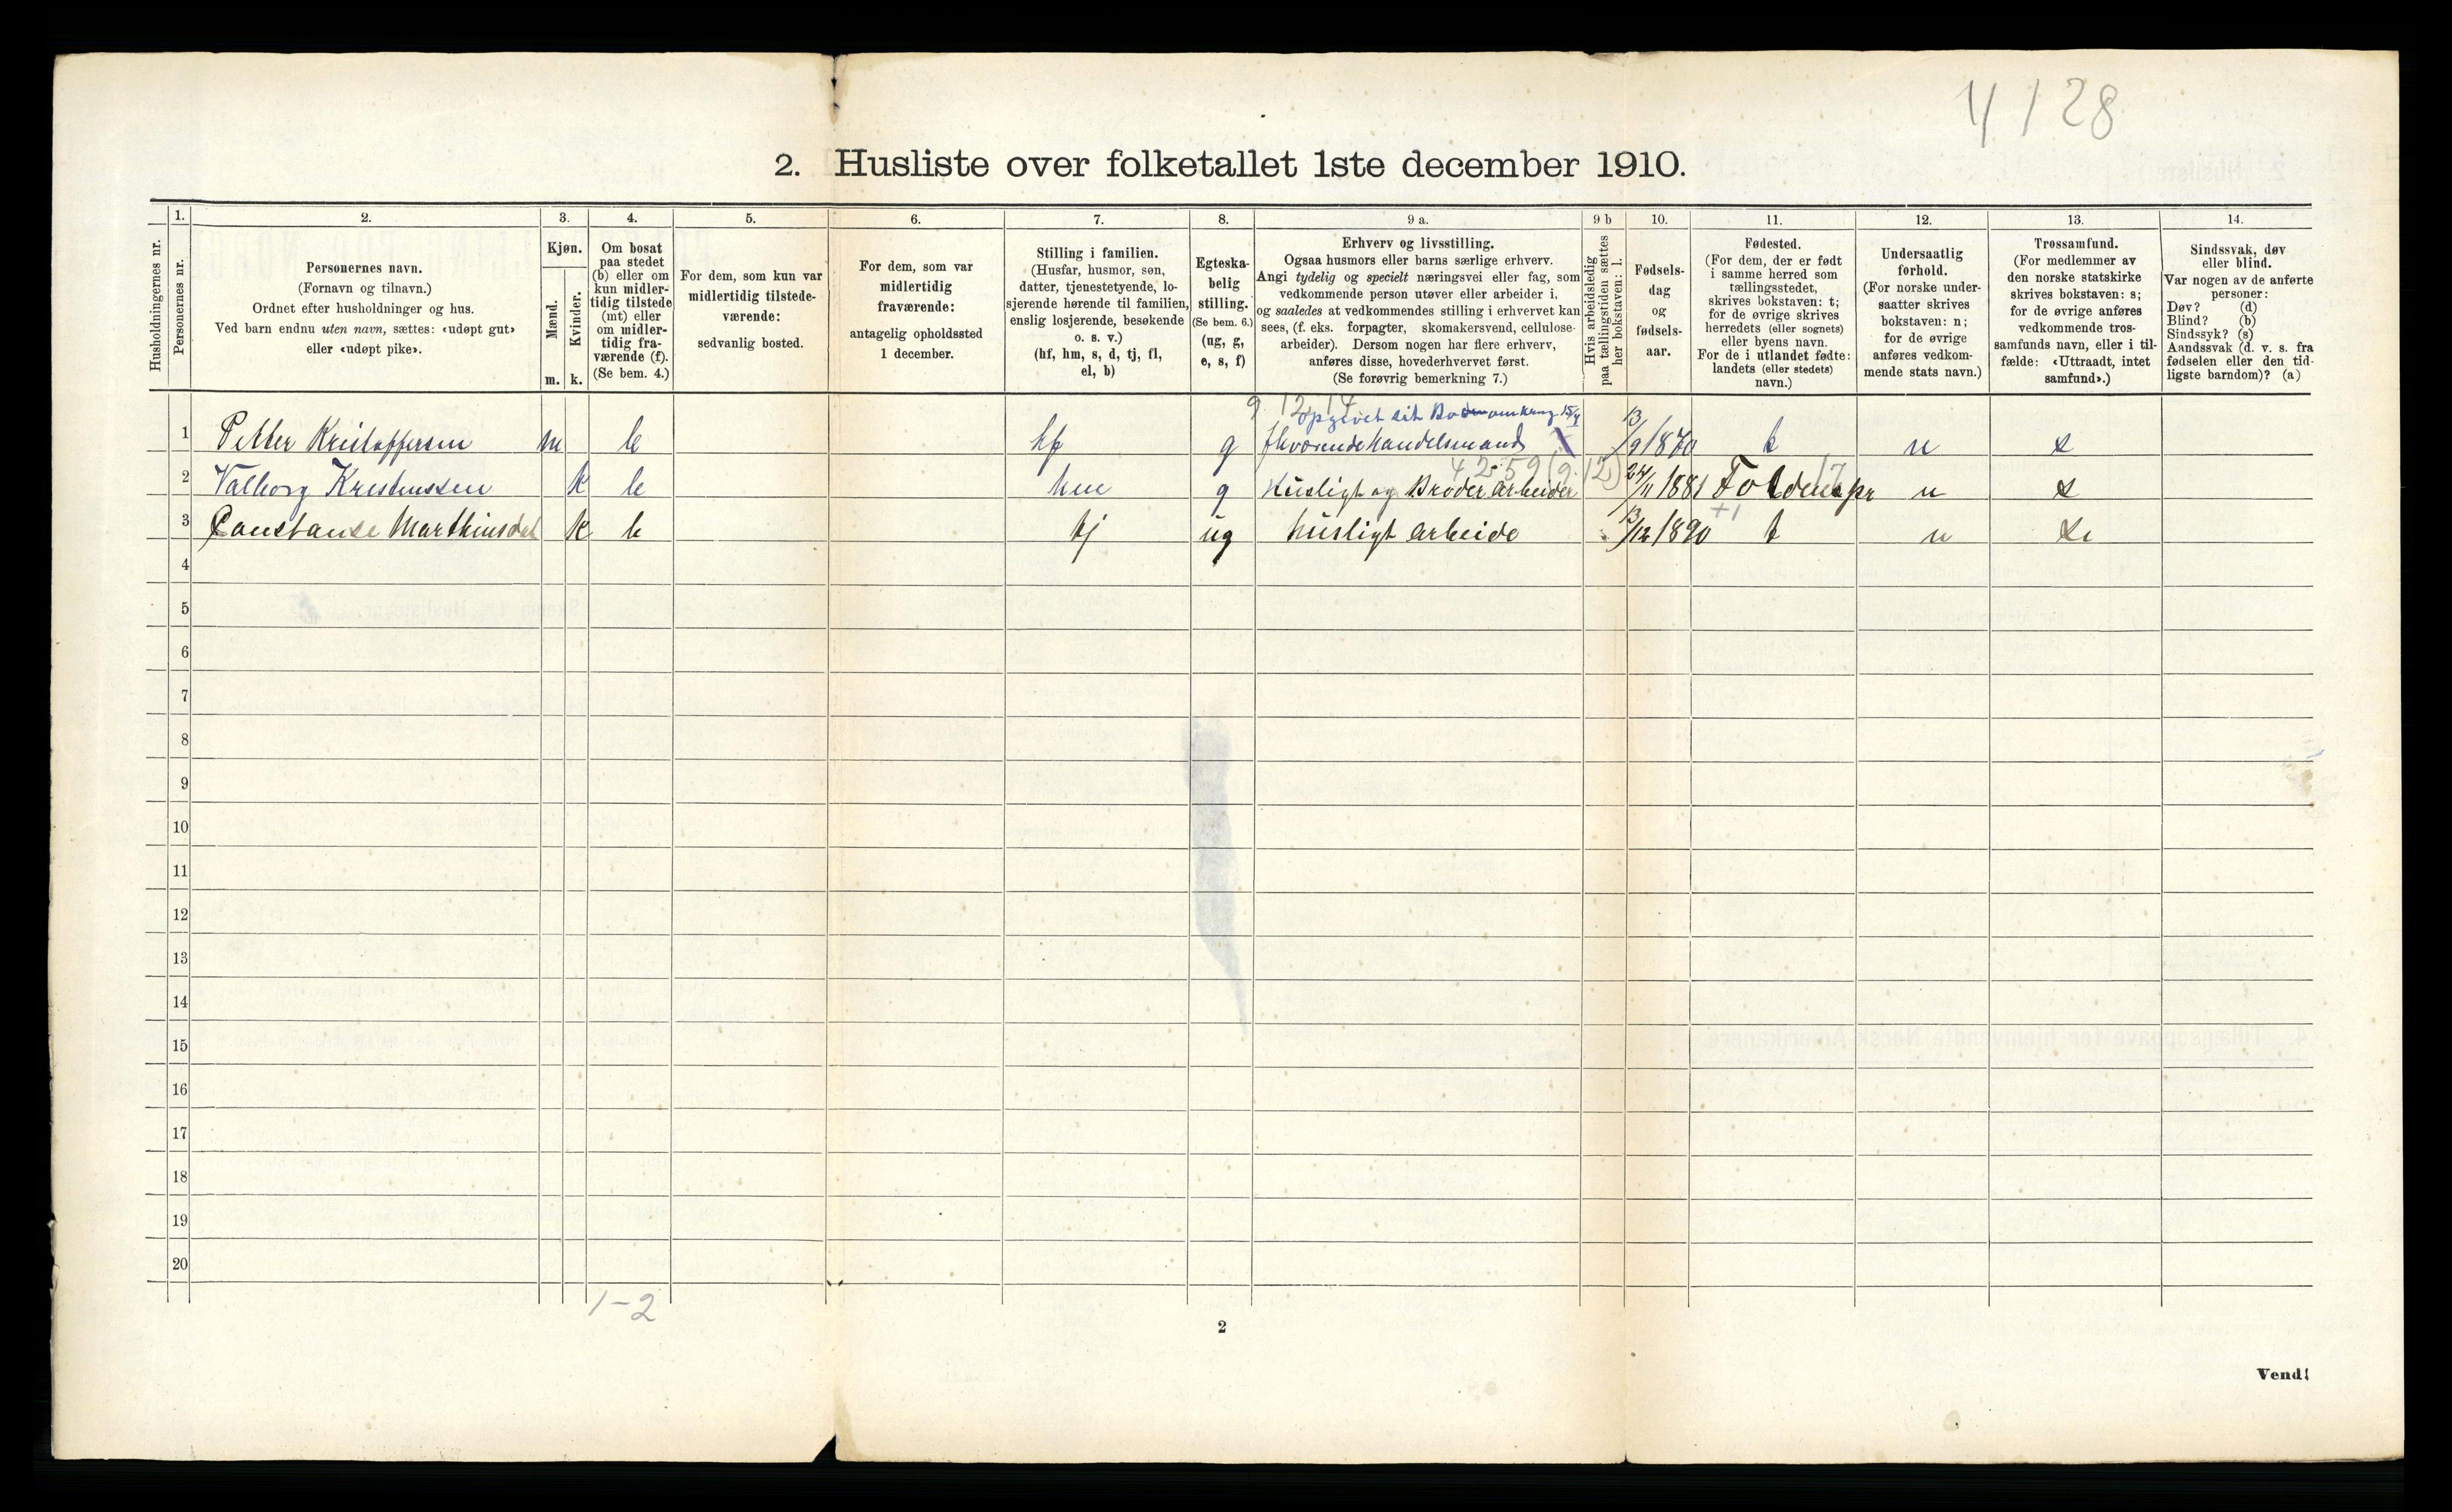 4128
2. Husliste over folketallet 1ste december 1910.
Husholdningernes nr.
1.
Personernes nr.
2.
Personernes navn.
(Fornavn og tilnavn.)
Ordnet efter husholdninger og hus.
Ved barn endnu uten navn, sættes: «udøpt gut»
eller «udøpt pike».
3.
Kjøn.
Mænd.
Kvinder.
m. k.
4.
Om bosat
paa stedet
(b) eller om
kun midler-
tidig tilstede
(mt) eller
om midler-
tidig fra-
værende (f).
(Se bem. 4.)
5.
For dem, som kun var
midlertidig tilstede-
værende:
sedvanlig bosted.
6.
For dem, som var
midlertidig
fraværende:
antagelig opholdssted
1 december.
7.
Stilling i familien.
(Husfar, husmor, søn,
datter, tjenestetyende, lo-
sjerende hørende til familien,
enslig losjerende, besøkende
o. s. v.)
(hf, hm, s, d, tj, fl,
el, b)
8.
Egteska-
belig
stilling.
(Se bem. 6.)
(ug, g,
e, s, f)
9 a.
Erhverv og livsstilling.
Ogsaa husmors eller barns særlige erhverv.
Angi tydelig og specielt næringsvei eller fag, som
vedkommende person utøver eller arbeider i,
og saaledes at vedkommendes stilling i erhvervet kan
sees, (f. eks. forpagter, skomakersvend, cellulose-
arbeider). Dersom nogen har flere erhverv,
anføres disse, hovederhvervet først.
(Se forøvrig bemerkning 7.)
9 b
Hvis arbeidsledig
paa tællingstiden sættes
her bokstaven: l.
10.
Fødsels-
dag
og
fødsels-
aar.
11.
Fødested.
(For dem, der er født
i samme herred som
tællingsstedet,
skrives bokstaven: t;
for de øvrige skrives
herredets (eller sognets)
eller byens navn.
For de i utlandet fødte:
landets (eller stedets)
navn.)
12.
Undersaatlig
forhold.
(For norske under-
saatter skrives
bokstaven: n;
for de øvrige
anføres vedkom-
mende stats navn.)
13.
Trossamfund.
(For medlemmer av
den norske statskirke
skrives bokstaven: s;
for de øvrige anføres
vedkommende tros-
samfunds navn, eller i til-
fælde: «Uttraadt, intet
samfund».)
14.
Sindssvak, døv
eller blind.
Var nogen av de anførte
personer:
Døv? (d)
Blind? (b)
Sindssyk? (s)
Aandssvak (d. v. s. fra
fødselen eller den tid-
ligste barndom)? (a)
9 12 14
opgivet sit Bo omkring
1 Petter Kristoffersen m b hf g fhværende Handelsmand 13/9 1870 t n s
42-59 (9.12) 17
2 Valborg Kristenssen k b hm g Husligt og Broder arbeider 24/11 1881 Foldens pr n s
+1
3 Constanse Marthinsdat k b tj ug husligt arbeide 13/12 1890 t n s
4
5
6
7
8
9
10
11
12
13
14
15
16
17
18
19
20
1-2
2
Vend!